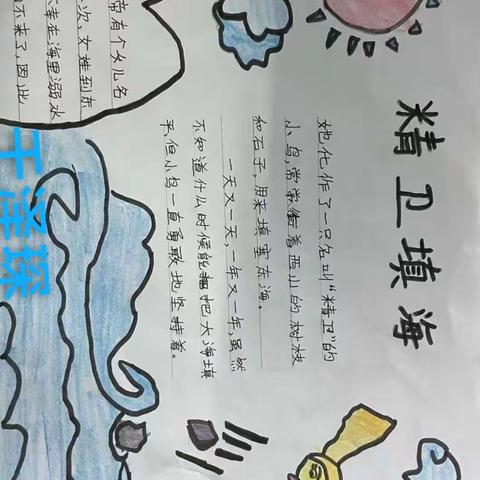 精卫填海
帝有个女儿名
次,女娃到东
幸在海里溺水
不来了,因此
她化作了一只名叫“精卫”的
小鸟,常常衔着西山的树枝
和石子,用来填塞东海。
一天又一天,一年又一年,虽然
不知道什么时候能把大海填
平,但小鸟一直勇敢地坚持着。
于泽琛